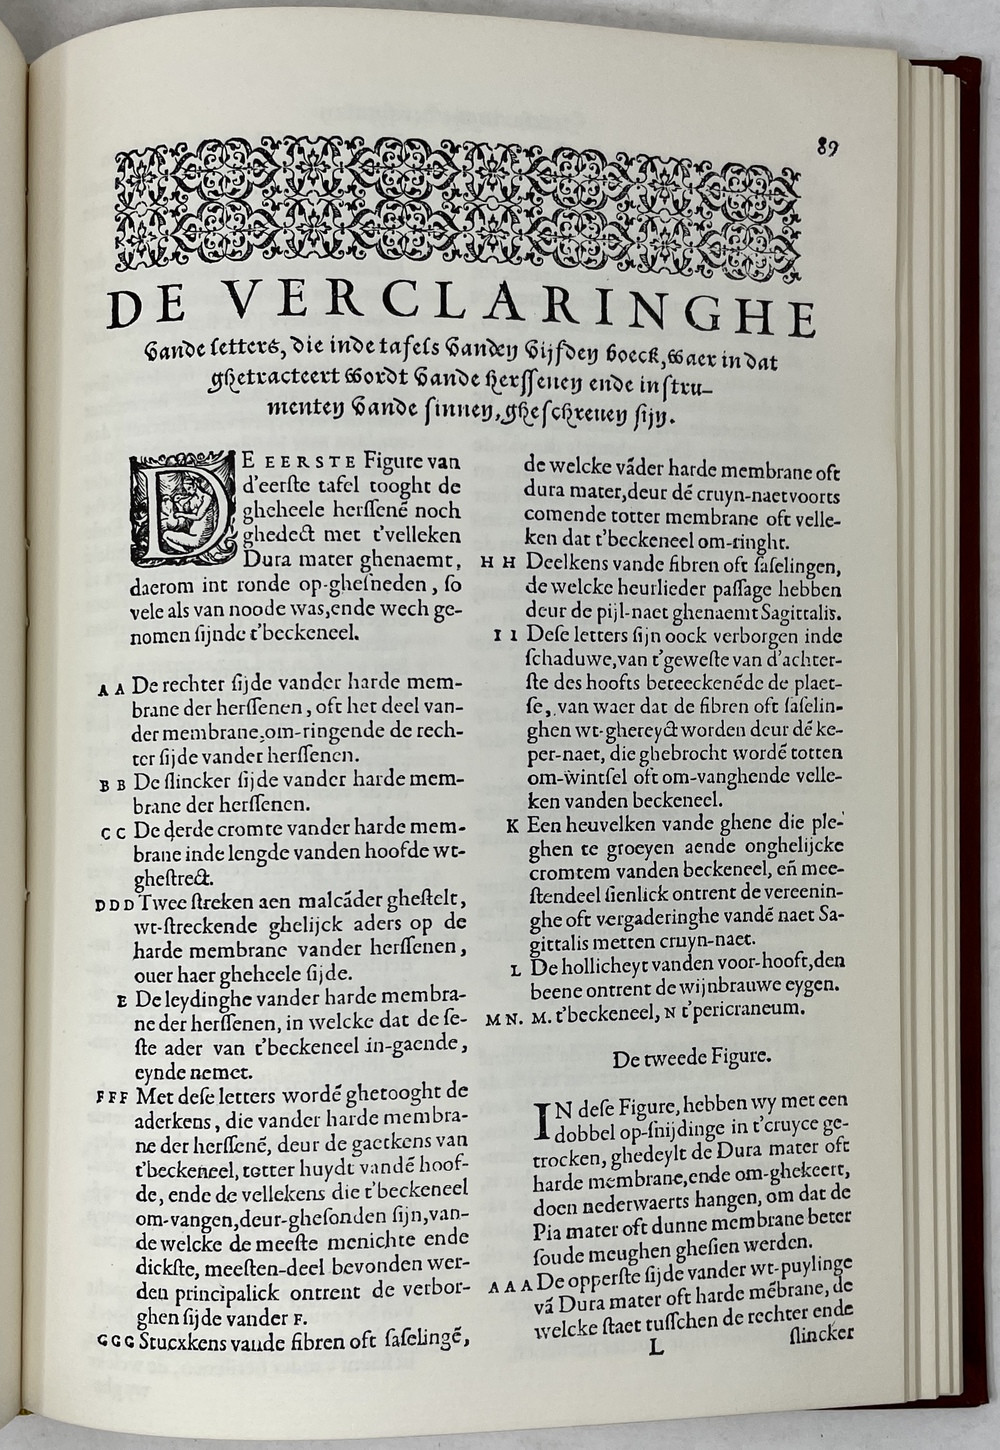 89
DE VERCLARINGHE
Vande letters, die inde tafels vanden vijfden boeck, waer in dat
ghetracteert wordt vande herſſenen ende inſtru-
menten vande ſinnen, gheſchreuen ſijn.
DE EERSTE Figure van
d'eerſte tafel tooght de
gheheele herſſenē noch
ghedect met t'velleken
Dura mater ghenaemt,
daerom int ronde op-gheſneden, ſo
vele als van noode was, ende wech ge-
nomen ſijnde t'beckeneel.
A A De rechter ſijde vander harde mem-
brane der herſſenen, oft het deel van-
der membrane, om-ringende de rech-
ter ſijde vander herſſenen.
B B De ſlincker ſijde vander harde mem-
brane der herſſenen.
C C De derde cromte vander harde mem-
brane inde lengde vanden hoofde wt-
gheſtrect.
D D D Twee ſtreken aen malcāder gheſtelt,
wt-ſtreckende ghelijck aders op de
harde membrane vander herſſenen,
ouer haer gheheele ſijde.
E De leydinghe vander harde membra-
ne der herſſenen, in welcke dat de ſe-
ſte ader van t'beckeneel in-gaende,
eynde nemet.
F F F Met deſe letters wordē ghetooght de
aderkens, die vander harde membra-
ne der herſſenē, deur de gaetkens van
t'beckeneel, totter huydt vandē hoof-
de, ende de vellekens die t'beckeneel
om-vangen, deur-gheſonden ſijn, van-
de welcke de meeſte menichte ende
dickſte, meeſten-deel bevonden wer-
den principalick ontrent de verbor-
ghen ſijde vander F.
G G G Stucxkens vande fibren oft ſaſelingē,
de welcke vāder harde membrane oft
dura mater, deur dē cruyn-naet voorts
comende totter membrane oft velle-
ken dat t'beckeneel om-ringht.
H H Deelkens vande fibren oft ſaſelingen,
de welcke heurlieder paſſage hebben
deur de pijl-naet ghenaemt Sagittalis.
I I Deſe letters ſijn oock verborgen inde
ſchaduwe, van t'geweſte van d'achter-
ſte des hoofts beteeckenēde de plaet-
ſe, van waer dat de fibren oft ſaſelin-
ghen wt-ghereyct worden deur dē ke-
per-naet, die ghebrocht wordē totten
om-wintſel oft om-vanghende velle-
ken vanden beckeneel.
K Een heuvelken vande ghene die ple-
ghen te groeyen aende onghelijcke
cromtem vanden beckeneel, en̄ mee-
ſtendeel ſienlick ontrent de vereenin-
ghe oft vergaderinghe vandē naet Sa-
gittalis metten cruyn-naet.
L De hollicheyt vanden voor-hooft, den
beene ontrent de wijnbrauwe eygen.
M N. M. t'beckeneel, N t'pericraneum.
De tweede Figure.
IN deſe Figure, hebben wy met een
dobbel op-ſnijdinge in t'cruyce ge-
trocken, ghedeylt de Dura mater oft
harde membrane, ende om-ghekeert,
doen nederwaerts hangen, om dat de
Pia mater oft dunne membrane beter
ſoude meughen gheſien werden.
A A A De opperſte ſijde vander wt-puylinge
vā Dura mater oft harde mēbrane, de
welcke ſtaet tuſſchen de rechter ende
L ſlincker